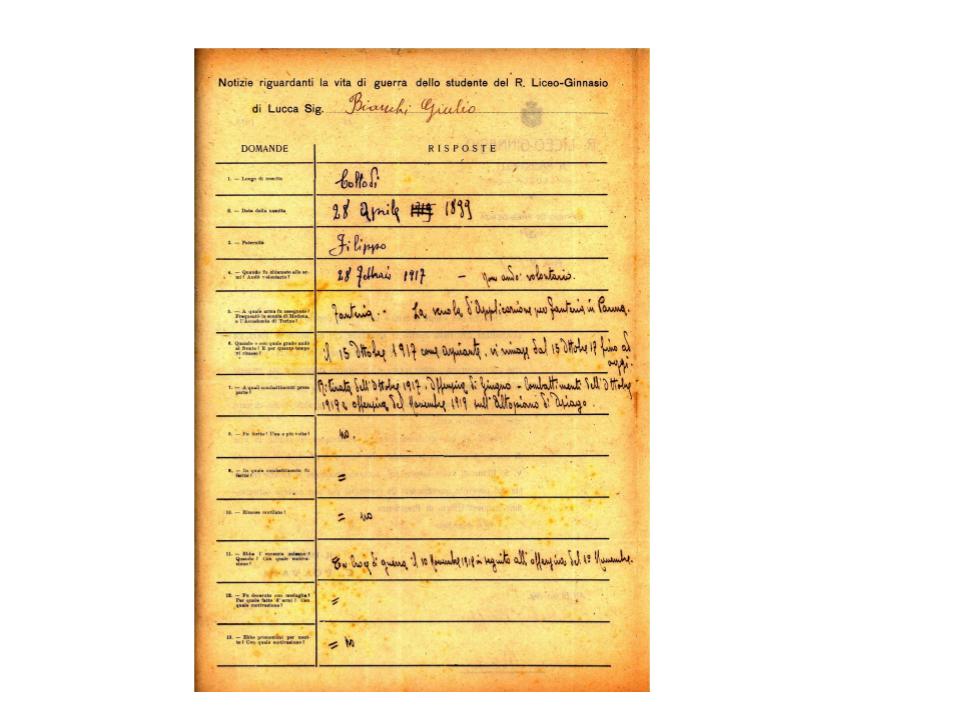 Notizie riguardanti la vita di guerra dello studente del R. Liceo-Ginnasio
di Lucca Sig. Bianchi Giulio
DOMANDE RISPOSTE
1. — Luogo di nascita Collodi
2. — Data della nascita 28 Aprile 1899
3. — Paternità Filippo
4. — Quando fu chiamato alle armi? Andò volontario? 28 Febbraio 1917 – Non andò volontario.
5. — A quale arma fu assegnato?
Frequentò la scuola di Modena,
o l'Accademia di Torino? Fanteria. - La scuola d'Applicazione per fanteria in Parma.
6. Quando e con quale grado andò
al fronte? E per quanto tempo
vi rimase? il 15 Ottobre 1917 come aspirante, vi rimase dal 15 Ottobre 17 fino ad
oggi.
7. — A quali combattimenti prese
parte? Ritirata dell'Ottobre 1917. Offensiva di Giugno – Combattimenti dell'Ottobre
1919 e offensiva del Novembre 1919 sull'Altopiano di Asiago.
8. — Fu ferito? Una o più volte? no.
9. — In quale combattimento fu
ferito? =
10. — Rimase mutilato? = no
11. — Ebbe l'encomio solenne?
Quando? Con quale motivazione? Croce di guerra il 10 Novembre 1918 in seguito all'offensiva del 1° Novembre.
12. — Fu decorato con medaglia?
Per quale fatto d'armi? Con
quale motivazione? =
13. — Ebbe promozioni per merito? Con quale motivazione? = no